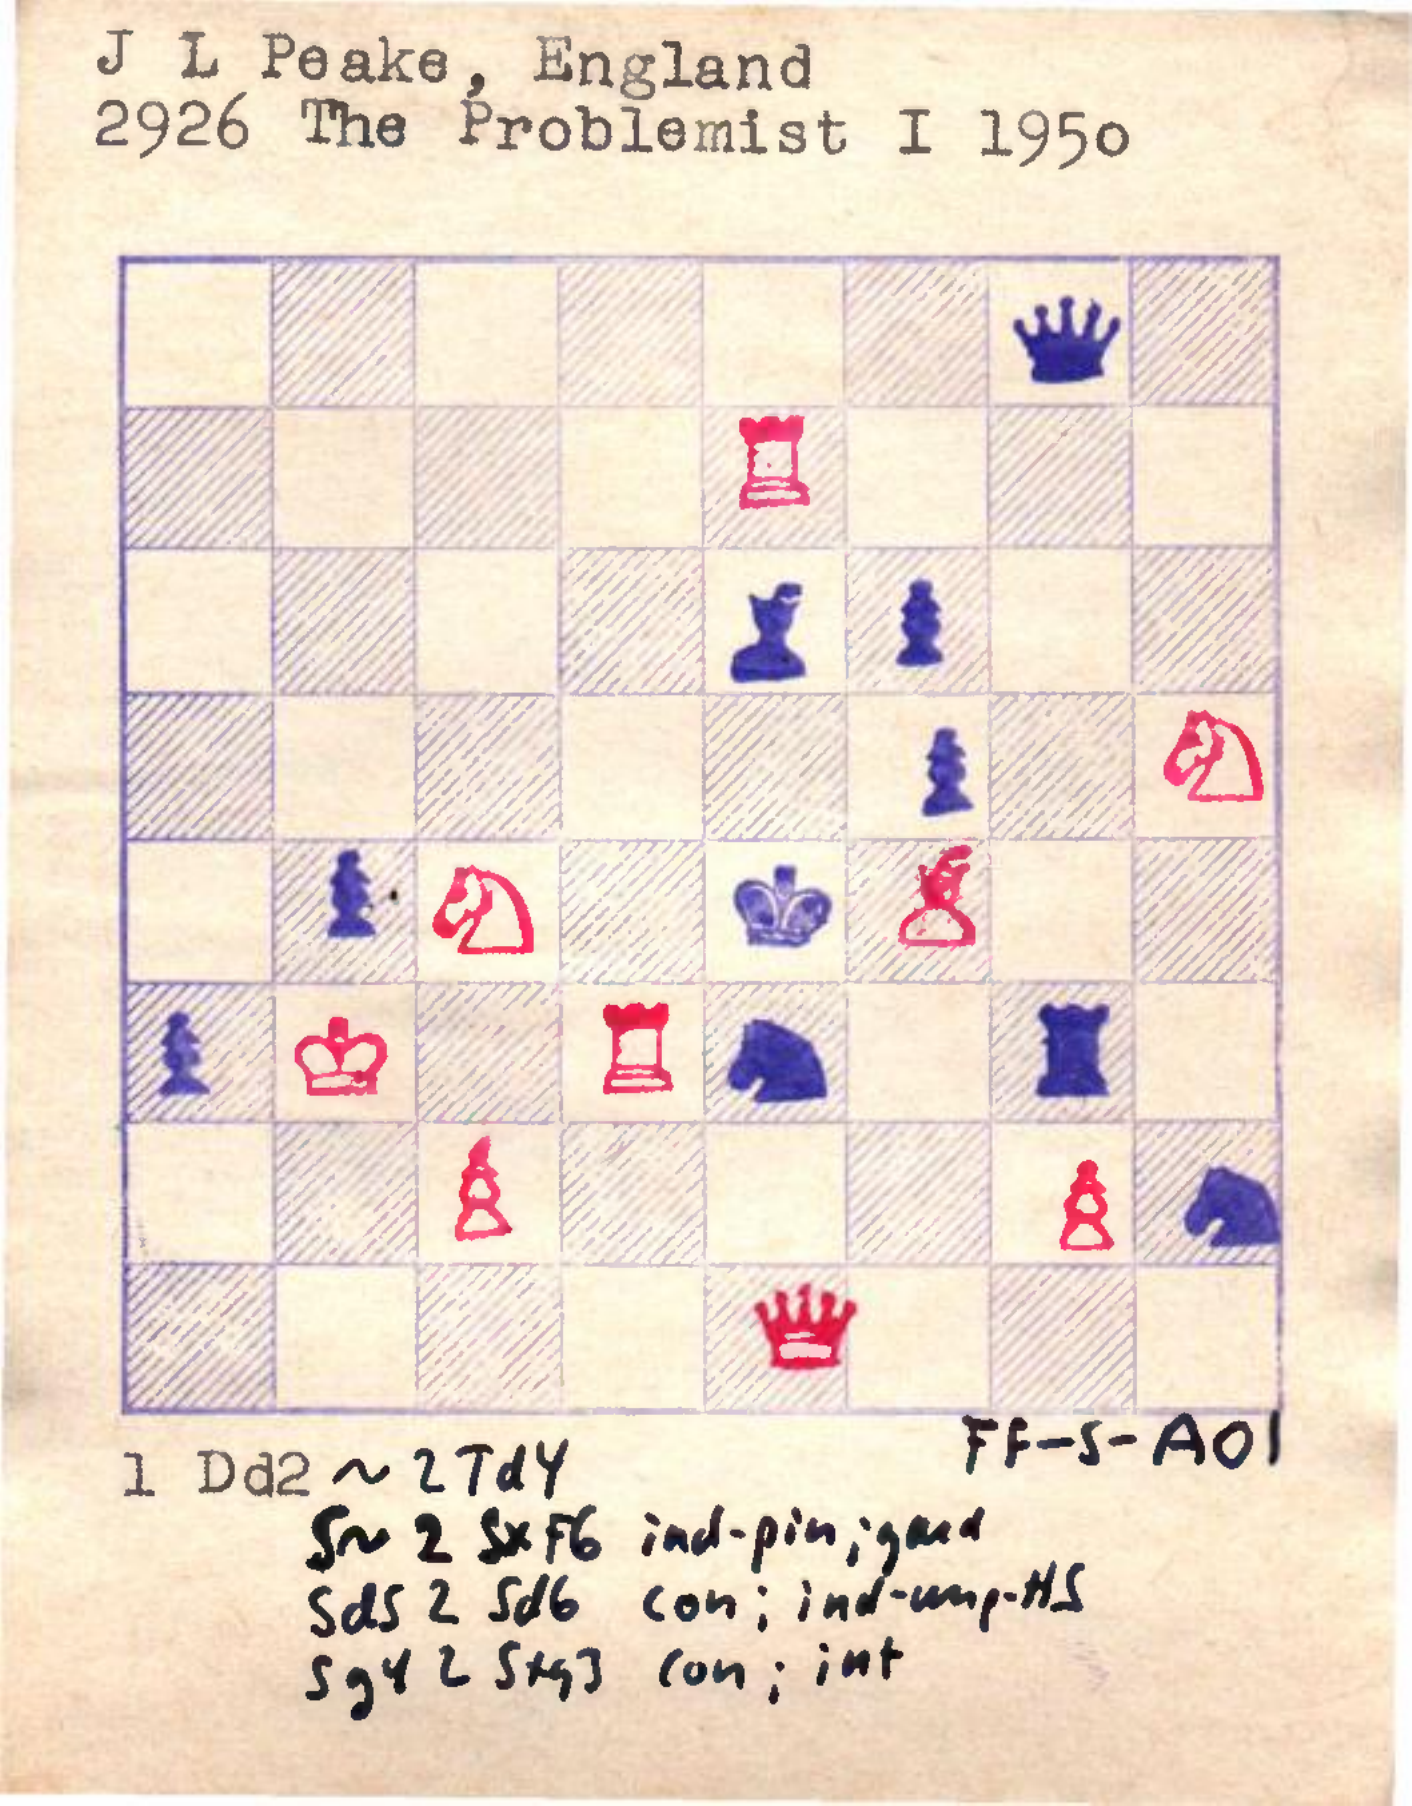 J L Peake, England
2926 The Problemist I 1950
FF-S-A01
1 Dd2 ~ 2 Td4
S~ 2 SxF6 ind-pin; guard
Sd5 2 Sd6 con; ind-unp-HS
Sg4 2 Sxg3 con; int